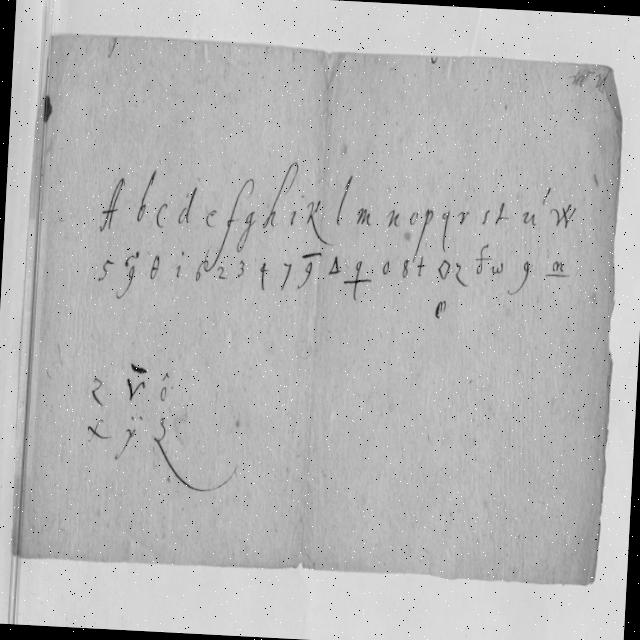 A b c d e f g h i K l m n o p q r s t u W
5 g θ i 6 2 3 4 7 g Δ q o 8 t 2 f w g m
2 v 6
x ÿ 3